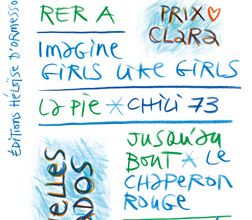 ÉDITIONS HÉLOÏSE D'ORMESSO
RER A
PRIX
CLARA
IMAGINE
GIRLS LIKE GIRLS
LA PIE * CHILI 73
JUSQU'AU
BOUT * LE
CHAPERON
ROUGE
elles
ADOS